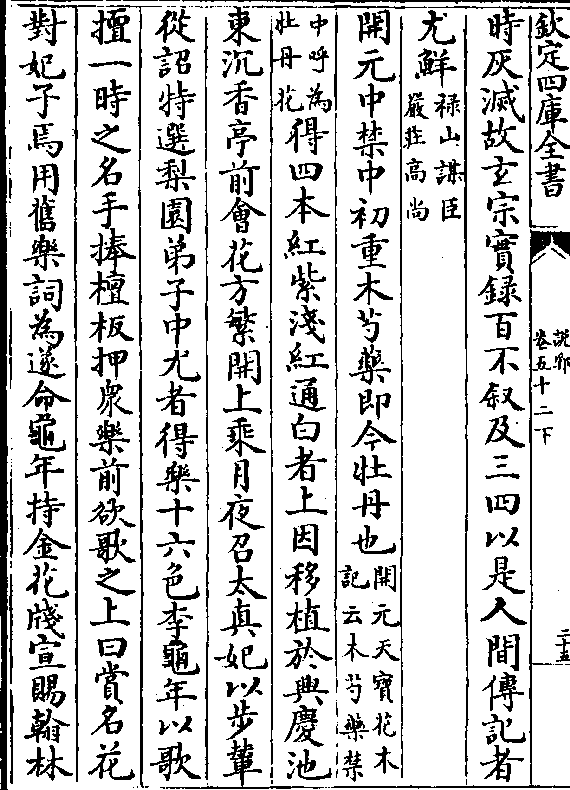 欽定四庫全書
說郛
卷五十二下
二十五
時灰滅故玄宗實録百不叙及三四以是人間傳記者
尤鮮禄山謀臣
嚴莊高尚
開元中禁中初重木芍藥即今牡丹也開元天寶花木
記云木芍藥禁
中呼為
牡丹花得四本紅紫淺紅通白者上因移植於興慶池
東沉香亭前會花方繁開上乘月夜召太真妃以步輦
從詔特選梨園弟子中尤者得樂十六色李龜年以歌
擅一時之名手捧檀板押衆樂前欲歌之上曰賞名花
對妃子焉用舊樂詞為遂命龜年持金花牋宣賜翰林